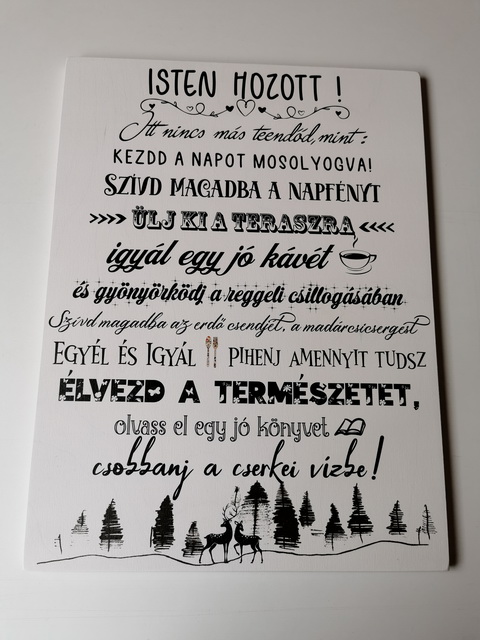 ISTEN HOZOTT !
Itt nincs más teendőd, mint :
KEZDD A NAPOT MOSOLYOGVA!
SZÍVD MAGADBA A NAPFÉNYT
>>>> ÜLJ KI A TERASZRA <<<<
igyál egy jó kávét
és gyönyörködj a reggeli csillogásában
Szívd magadba az erdő csendjét, a madárcsicsergést
EGYÉL ÉS IGYÁL PIHENJ AMENNYIT TUDSZ
ÉLVEZD A TERMÉSZETET,
olvass el egy jó könyvet
csobbanj a cserkei vízbe!